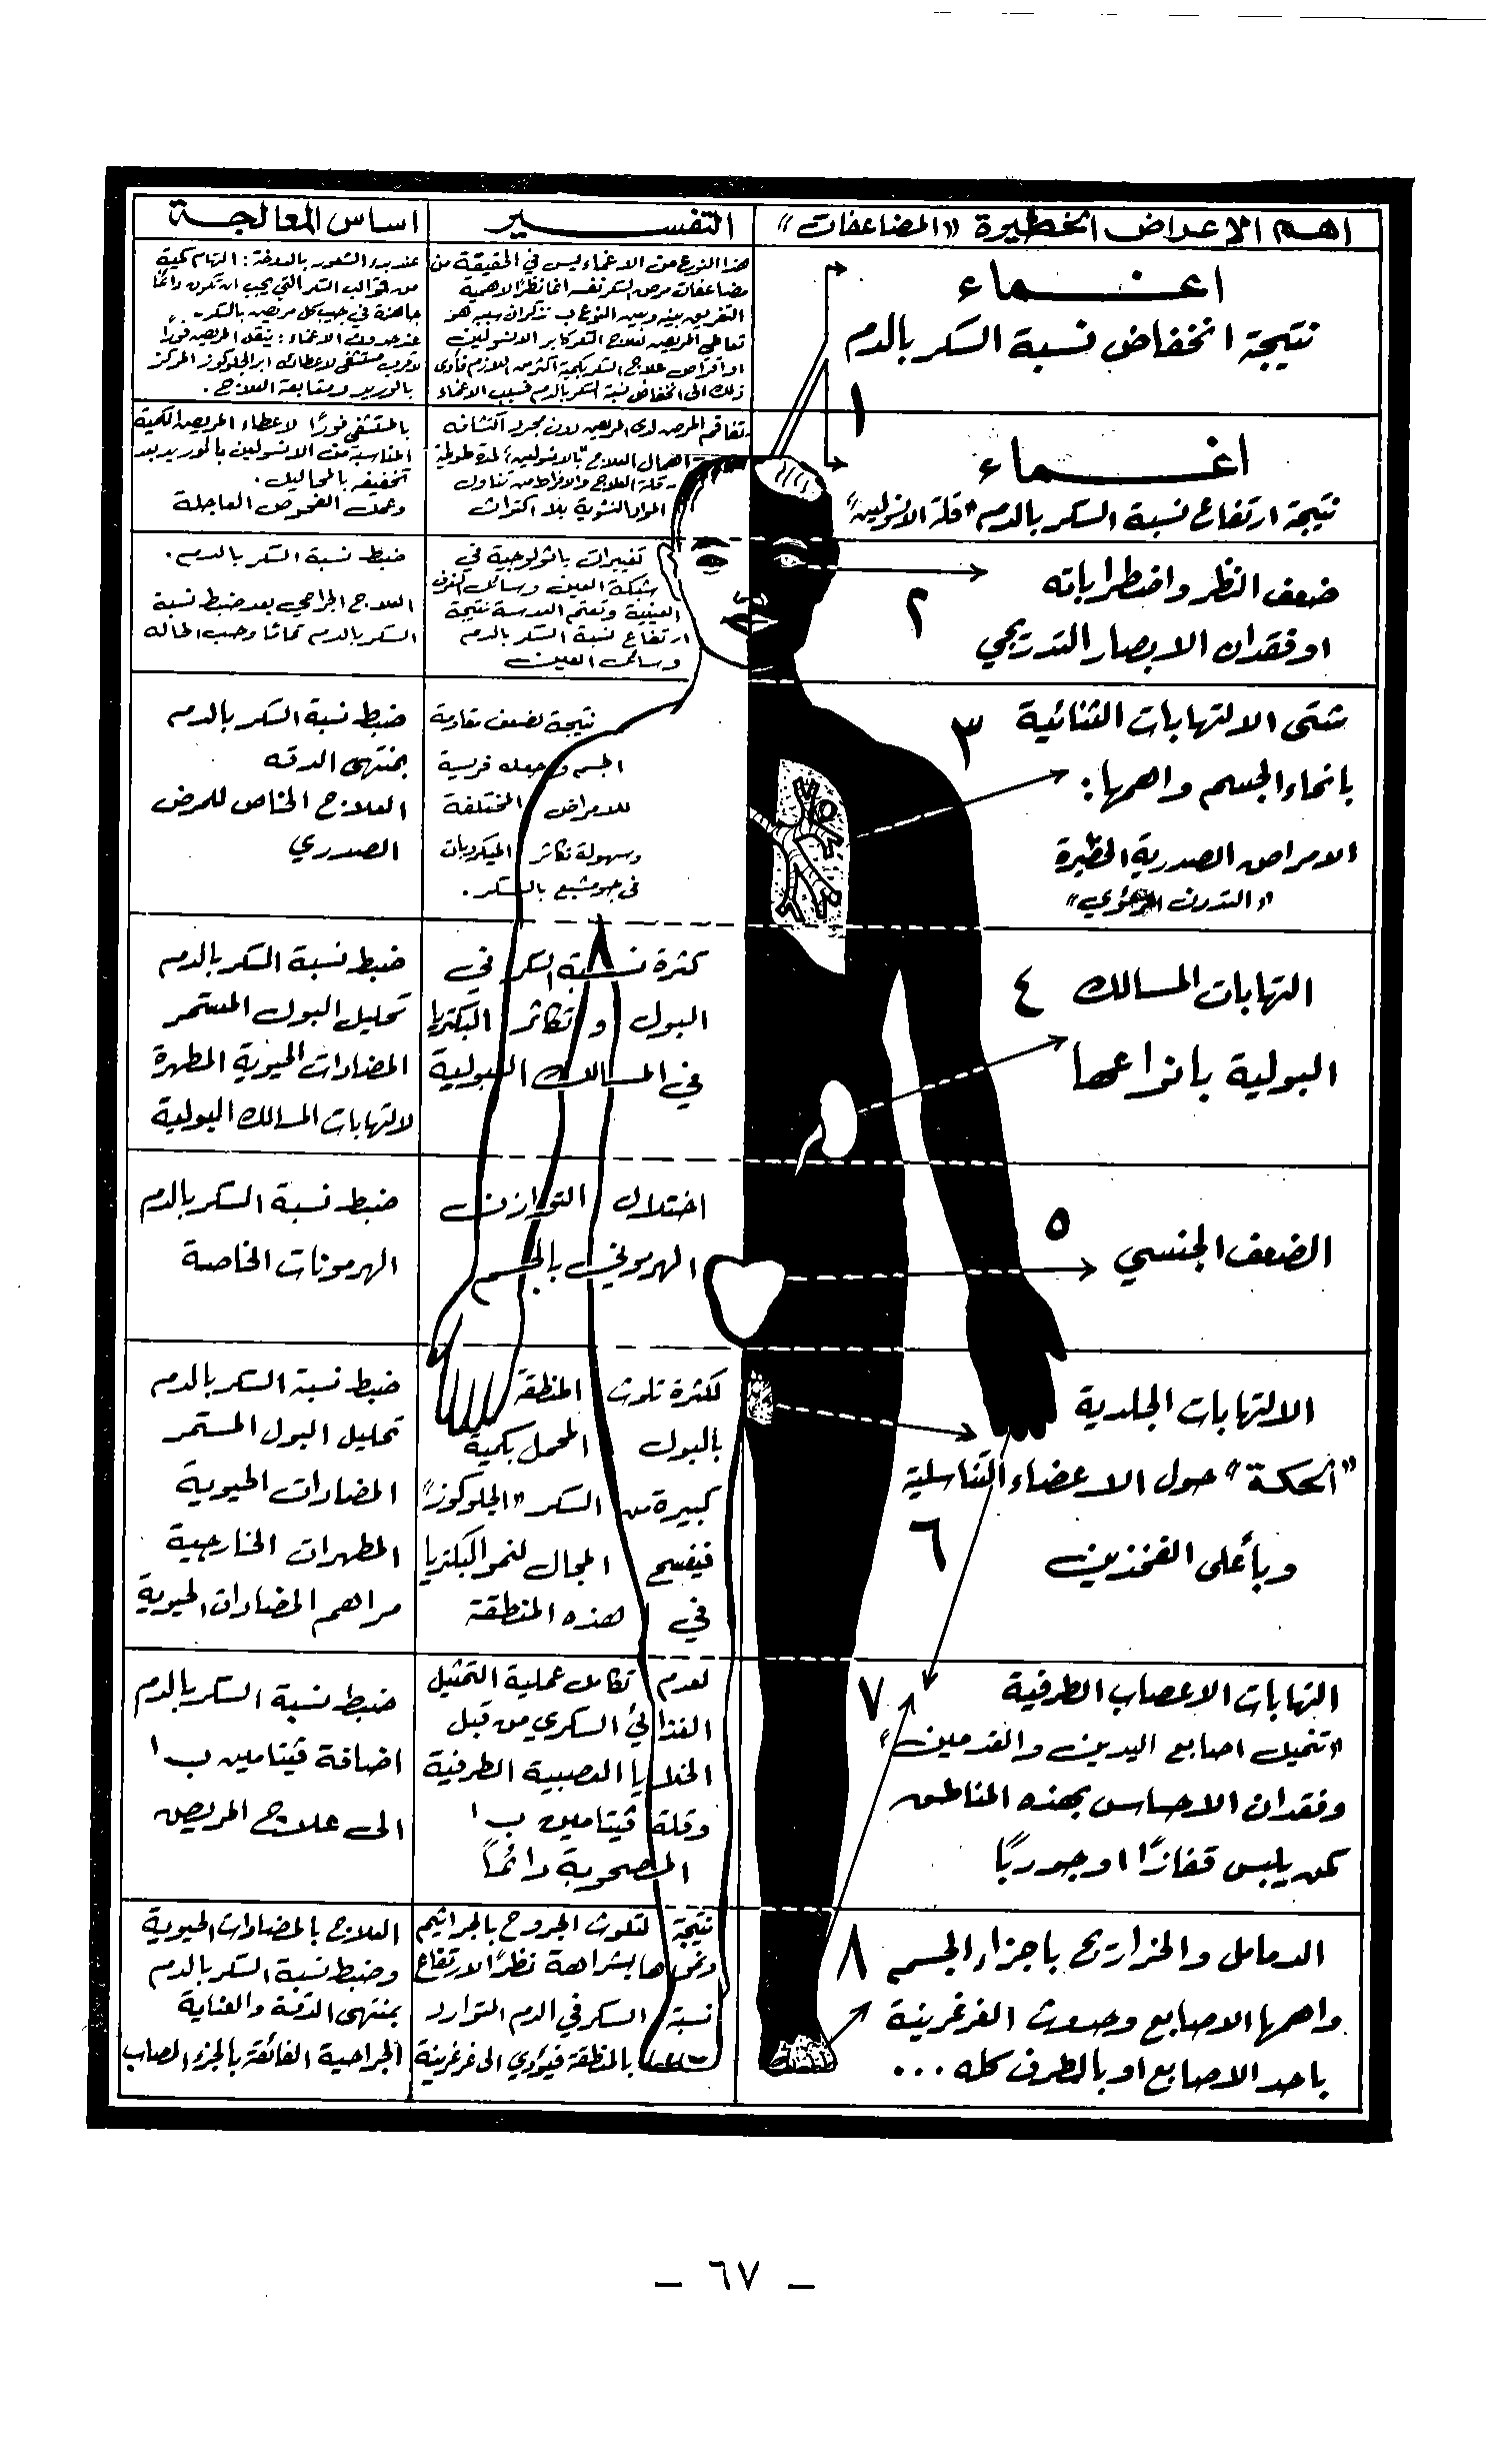 اهم الاعراض الخطيرة «المضاعفات»
التفسير
اساس المعالجة
اغماء
نتيجة انخفاض نسبة السكر بالدم
١
هذا النوع من الاغماء ليس في الحقيقة من
مضاعفات مرض السكر نفسه انما نظرًا لاهمية
التفريق بينه وبين النوع ب نذكر ان سببه هو
تعاطي المريض لعلاج السكر كابر الانسولين
او اقراص علاج السكر بكمية اكثر من اللازم فأدى
ذلك الى انخفاض نسبة السكر بالدم فسبب الاغماء
عند بدء الشعور بالدوخة: التهام كمية
من قوالب السكر التي يجب ان تكون دائمًا
جاهزة في جيب كل مريض بالسكر.
عند حدوث الاغماء: ينقل المريض فورًا
لاقرب مستشفى لاعطائه ابر الجلوكوز المركز
بالوريد ومتابعة العلاج.
اغماء
نتيجة ارتفاع نسبة السكر بالدم "قلة الانسولين"
تفاقم المرض لدى المريض دون مجرد اكتشافه
اهمال العلاج "بالانسولين" لمدة طويلة
قلة العلاج والافراط من تناول
المواد النشوية بلا اكتراث
بالمستشفى فورًا لاعطاء المريض الكمية
المناسبة من الانسولين بالوريد بعد
تخفيفه بالمحاليل.
وعمل الفحوص العاجلة
ضعف النظر واضطراباته
٢
او فقدان الابصار التدريجي
تغييرات باثولوجية في
شبكة العين وسائل
العينية وتعتم العدسة نتيجة
ارتفاع نسبة السكر بالدم
وسائل العين
ضبط نسبة السكر بالدم.
العلاج الجراحي بعد ضبط نسبة
السكر بالدم تمامًا وحسب الحالة
شتى الالتهابات الثنائية
٣
بانحاء الجسم واهمها:
الامراض الصدرية الخطيرة
«التدرن الرئوي»
نتيجة لضعف مقاومة
الجسم وجعله فريسة
للامراض المختلفة
وسهولة تكاثر الميكروبات
في جو مشبع بالسكر.
ضبط نسبة السكر بالدم
بمنتهى الدقه
العلاج الخاص للمرض
الصدري
التهابات المسالك
٤
البولية بانواعها
٨
كثرة نسبة السكر في
البول وتكاثر البكتريا
في المسالك البولية
ضبط نسبة السكر بالدم
تحليل البول المستمر
المضادات الحيوية المطهرة
لالتهابات المسالك البولية
الضعف الجنسي
٥
اختلال التوازن
الهرموني بالجسم
ضبط نسبة السكر بالدم
الهرمونات الخاصة
الالتهابات الجلدية
"الحكة" حول الاعضاء التناسلية
٦
وبأعلى الفخذين
لكثرة تلوث المنطقة
بالبول المحمل بكمية
كبيرة من السكر "الجلوكوز"
فيفسح المجال لنمو البكتريا
في هذه المنطقة
ضبط نسبة السكر بالدم
تحليل البول المستمر
المضادات الحيوية
المطهرات الخارجية
مراهم المضادات الحيوية
التهابات الاعصاب الطرفية
٧
"تنميل اصابع اليدين والقدمين"
وفقدان الاحساس بهذه المناطق
كمن يلبس قفازًا او جوربًا
لعدم تكامل عملية التمثيل
الغذائي السكري من قبل
الخلايا العصبية الطرفية
وقلة ڤيتامين ب١
المصحوبة دائمًا
ضبط نسبة السكر بالدم
اضافة ڤيتامين ب١
الى علاج المريض
الدمامل والخراريج باجزاء الجسم
٨
واهمها الاصابع وحدوث الغرغرينة
باحد الاصابع او بالطرف كله ...
نتيجة لتلوث الجروح بالجراثيم
ونموها بشراهة نظرًا لارتفاع
نسبة السكر في الدم المتوارد
بالمنطقة فيؤدي الى غرغرينة
العلاج بالمضادات الحيوية
وضبط نسبة السكر بالدم
بمنتهى الدقة والعناية
الجراحية الفائقة بالجزء المصاب
- ٦٧ -